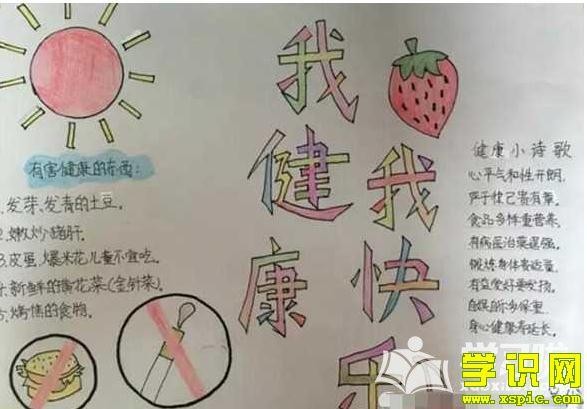 有害健康的东西:
1.发芽、发青的土豆。
2.嫩炒猪肝。
3.皮蛋、爆米花儿童不宜吃。
4.新鲜的黄花菜(金针菜)。
5.烤焦的食物。
我健康
我快乐
健康小诗歌
心平气和性开朗,
严于律己贵有常。
食品多样重营养,
有病医治莫逞强。
锻炼身体要适量,
有益爱好要发扬。
身心健康寿延长。
学识网
www.xspic.com